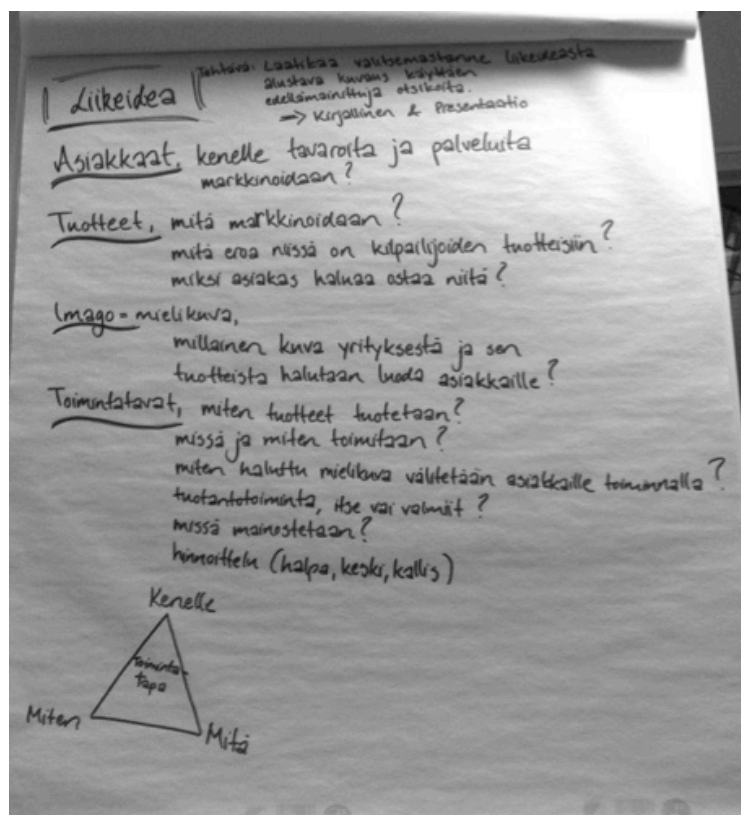 Liikeidea
Tehtävä: Laatikaa valitsemastanne liikeideasta
alustava kuvaus käyttäen
edellämainittuja otsikoita.
→ Kirjallinen & Presentaatio
Asiakkaat, kenelle tavaroita ja palveluita
markkinoidaan?
Tuotteet, mitä markkinoidaan?
mitä eroa niissä on kilpailijoiden tuotteisiin?
miksi asiakas haluaa ostaa niitä?
Imago = mielikuva,
millainen kuva yrityksestä ja sen
tuotteista halutaan luoda asiakkaille?
Toimintatavat, miten tuotteet tuotetaan?
missä ja miten toimitaan?
miten haluttu mielikuva välitetään asiakkaille toiminnalla?
tuotantotoiminta, itse vai valmiit?
missä mainostetaan?
hinnoittelu (halpa, keski, kallis)
Kenelle
Toiminta-
tapa
Miten
Mitä